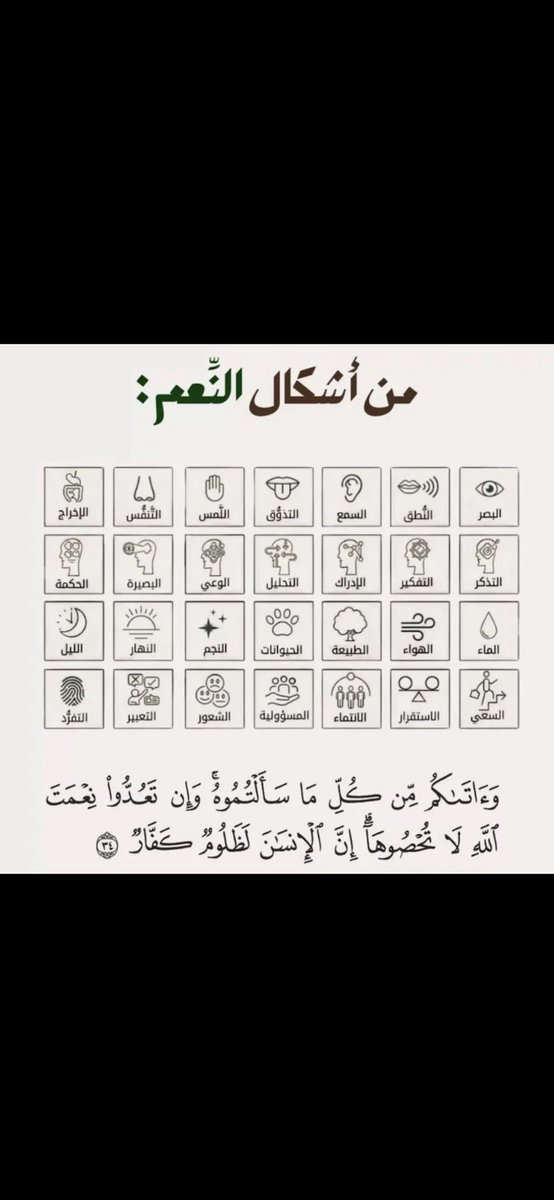 من أشكال النِّعم:
البصر
النُّطق
السمع
التذوُّق
اللَّمس
التَّنفُّس
الإخراج
التذكر
التفكير
الإدراك
التحليل
الوعي
البصيرة
الحكمة
الماء
الهواء
الطبيعة
الحيوانات
النجم
النهار
الليل
السعي
الاستقرار
الانتماء
المسؤولية
الشعور
التعبير
التفرُّد
وَءَاتَىٰكُم مِّن كُلِّ مَا سَأَلْتُمُوهُۚ وَإِن تَعُدُّوا۟ نِعْمَتَ
ٱللَّهِ لَا تُحْصُوهَآۗ إِنَّ ٱلْإِنسَٰنَ لَظَلُومٌ كَفَّارٌ ٣٤